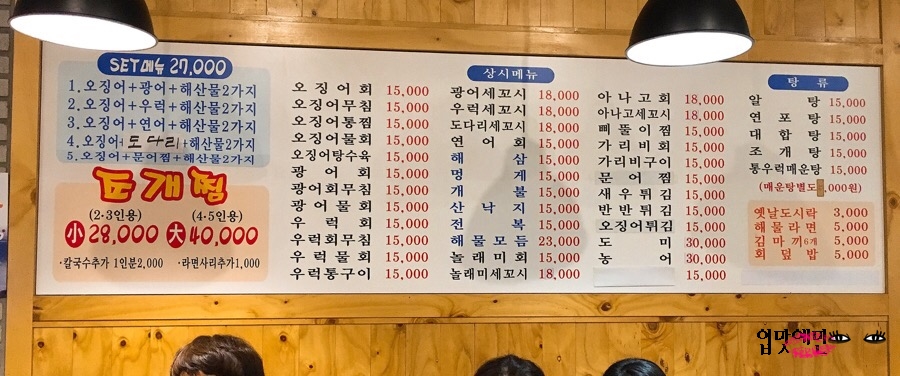 SET메뉴 27,000
1.오징어+광어+해산물2가지
2.오징어+우럭+해산물2가지
3.오징어+연어+해산물2가지
4.오징어+도다리+해산물2가지
5.오징어+문어찜+해산물2가지
조개찜
(2·3인용) (4·5인용)
小 28,000 大 40,000
·칼국수추가 1인분2,000 ·라면사리추가1,000
오징어회 15,000
오징어무침 15,000
오징어통찜 15,000
오징어물회 15,000
오징어탕수육 15,000
광어회 15,000
광어회무침 15,000
광어물회 15,000
우럭회 15,000
우럭회무침 15,000
우럭물회 15,000
우럭통구이 15,000
상시메뉴
광어세꼬시 18,000
우럭세꼬시 18,000
도다리세꼬시 18,000
연어회 15,000
해삼 15,000
멍게 15,000
개불 15,000
산낙지 15,000
전복 15,000
해물모듬 23,000
놀래미회 15,000
놀래미세꼬시 18,000
아나고회 18,000
아나고세꼬시 18,000
삐뚤이찜 15,000
가리비회 15,000
가리비구이 15,000
문어찜 15,000
새우튀김 15,000
반반튀김 15,000
오징어튀김 15,000
도미 30,000
농어 30,000
15,000
탕류
알탕 15,000
연포탕 15,000
대합탕 15,000
조개탕 15,000
통우럭매운탕 15,000
(매운탕별도 ,000원)
옛날도시락 3,000
해물라면 5,000
김마끼6개 5,000
회덮밥 5,000
입맛에민